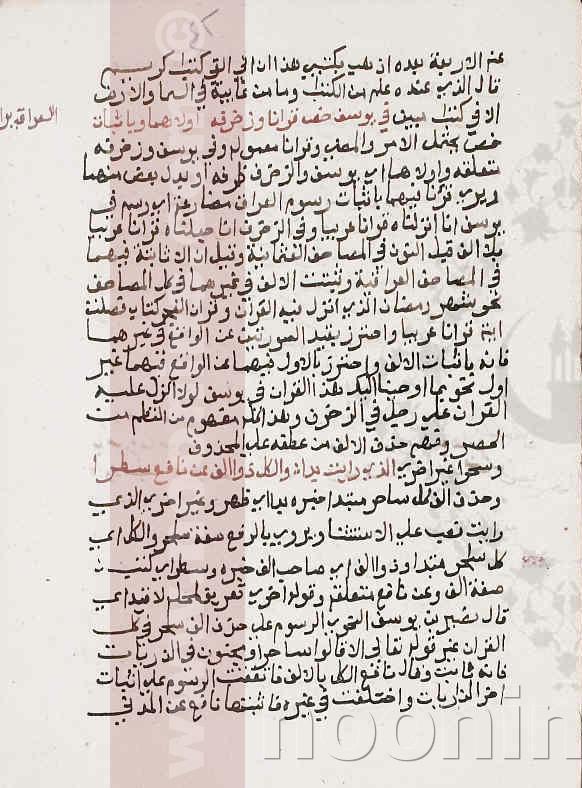 عنه الاربعة بعده اذهب بكتبي هذا انى القى كتاب كريم
قال الذي عنده علم من الكتاب وما من غايبة في السما والارض
الا في كتاب مبين في يوسف حذف قرانا وزخرفه اولاهما وباثبات
خص يحتمل الامر والمضى وقرانا معموله وفي يوسف وزخرفه
متعلقه واولاهما اي يوسف والزخرف ظرفه او بدل بعض منهما
قرانا فيهما باثبات رسوم العراق مضارعة اي رسم في
يوسف انا انزلناه قرانا عربيا وفي الزخرف انا جعلناه قرانا عربيا
بلا الف قبل النون في المصاحف العثمانية وقيل ان الا ثابتة فيهما
في المصاحف العراقية وثبتت الالف في غيرهما في كل المصاحف
نحو شهر رمضان الذي انزل فيه القران وقران الفجر كتاب فصلت
ايته قرانا عربيا واحترز بقيد السورتين عن الواقع في غيرهما
فانه باثبات الالف واحترز بالاول فيهما عن الواقع فيهما غير
اول نحو بما اوحينا اليك هذا القران في يوسف لولا نزل عليه
القران على رجل في الزخرف وهذا كله مفهوم من النظم من
الحصر وفهم حذف الالف من عطفه على المحذوف
وسحرا غير اخرى الذي رايت بدا والكل ذو الف عن نافع سطرا
وحذف الف كل ساحر مبتدا خبره بدا اي ظهر وغير اخرى الذي
رايت نصب على الاستثنا ويروى بالرفع صفة ساحر والكل اي
كل ساحر مبتدا وذو الف اي صاحب الف خبره وسطر اي كتب
صفة الف وعن نافع متعلقه وقوله اخرى تعريف لمحله لا قيد اي
قال نصير بن يوسف النحوي الرسوم على حذف الف سحر في كل
القران غير قوله تعالى الا قالوا ساحر او مجنون في الذريات
فانه ثابت وقال نافع الكل بالالف فاتفقت الرسوم على اثبات
اخر الذاريات واختلفت في غيره فاثبتها نافع عن المدني